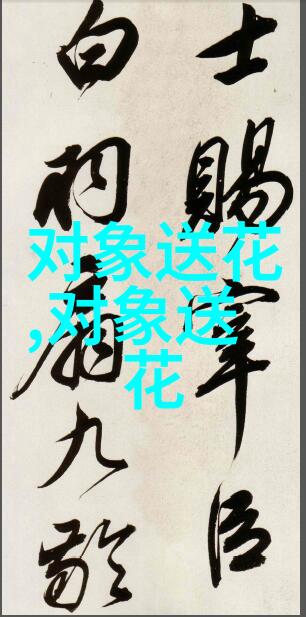 士賜宰臣
白羽扇九齡
对象送花
,对象送
花